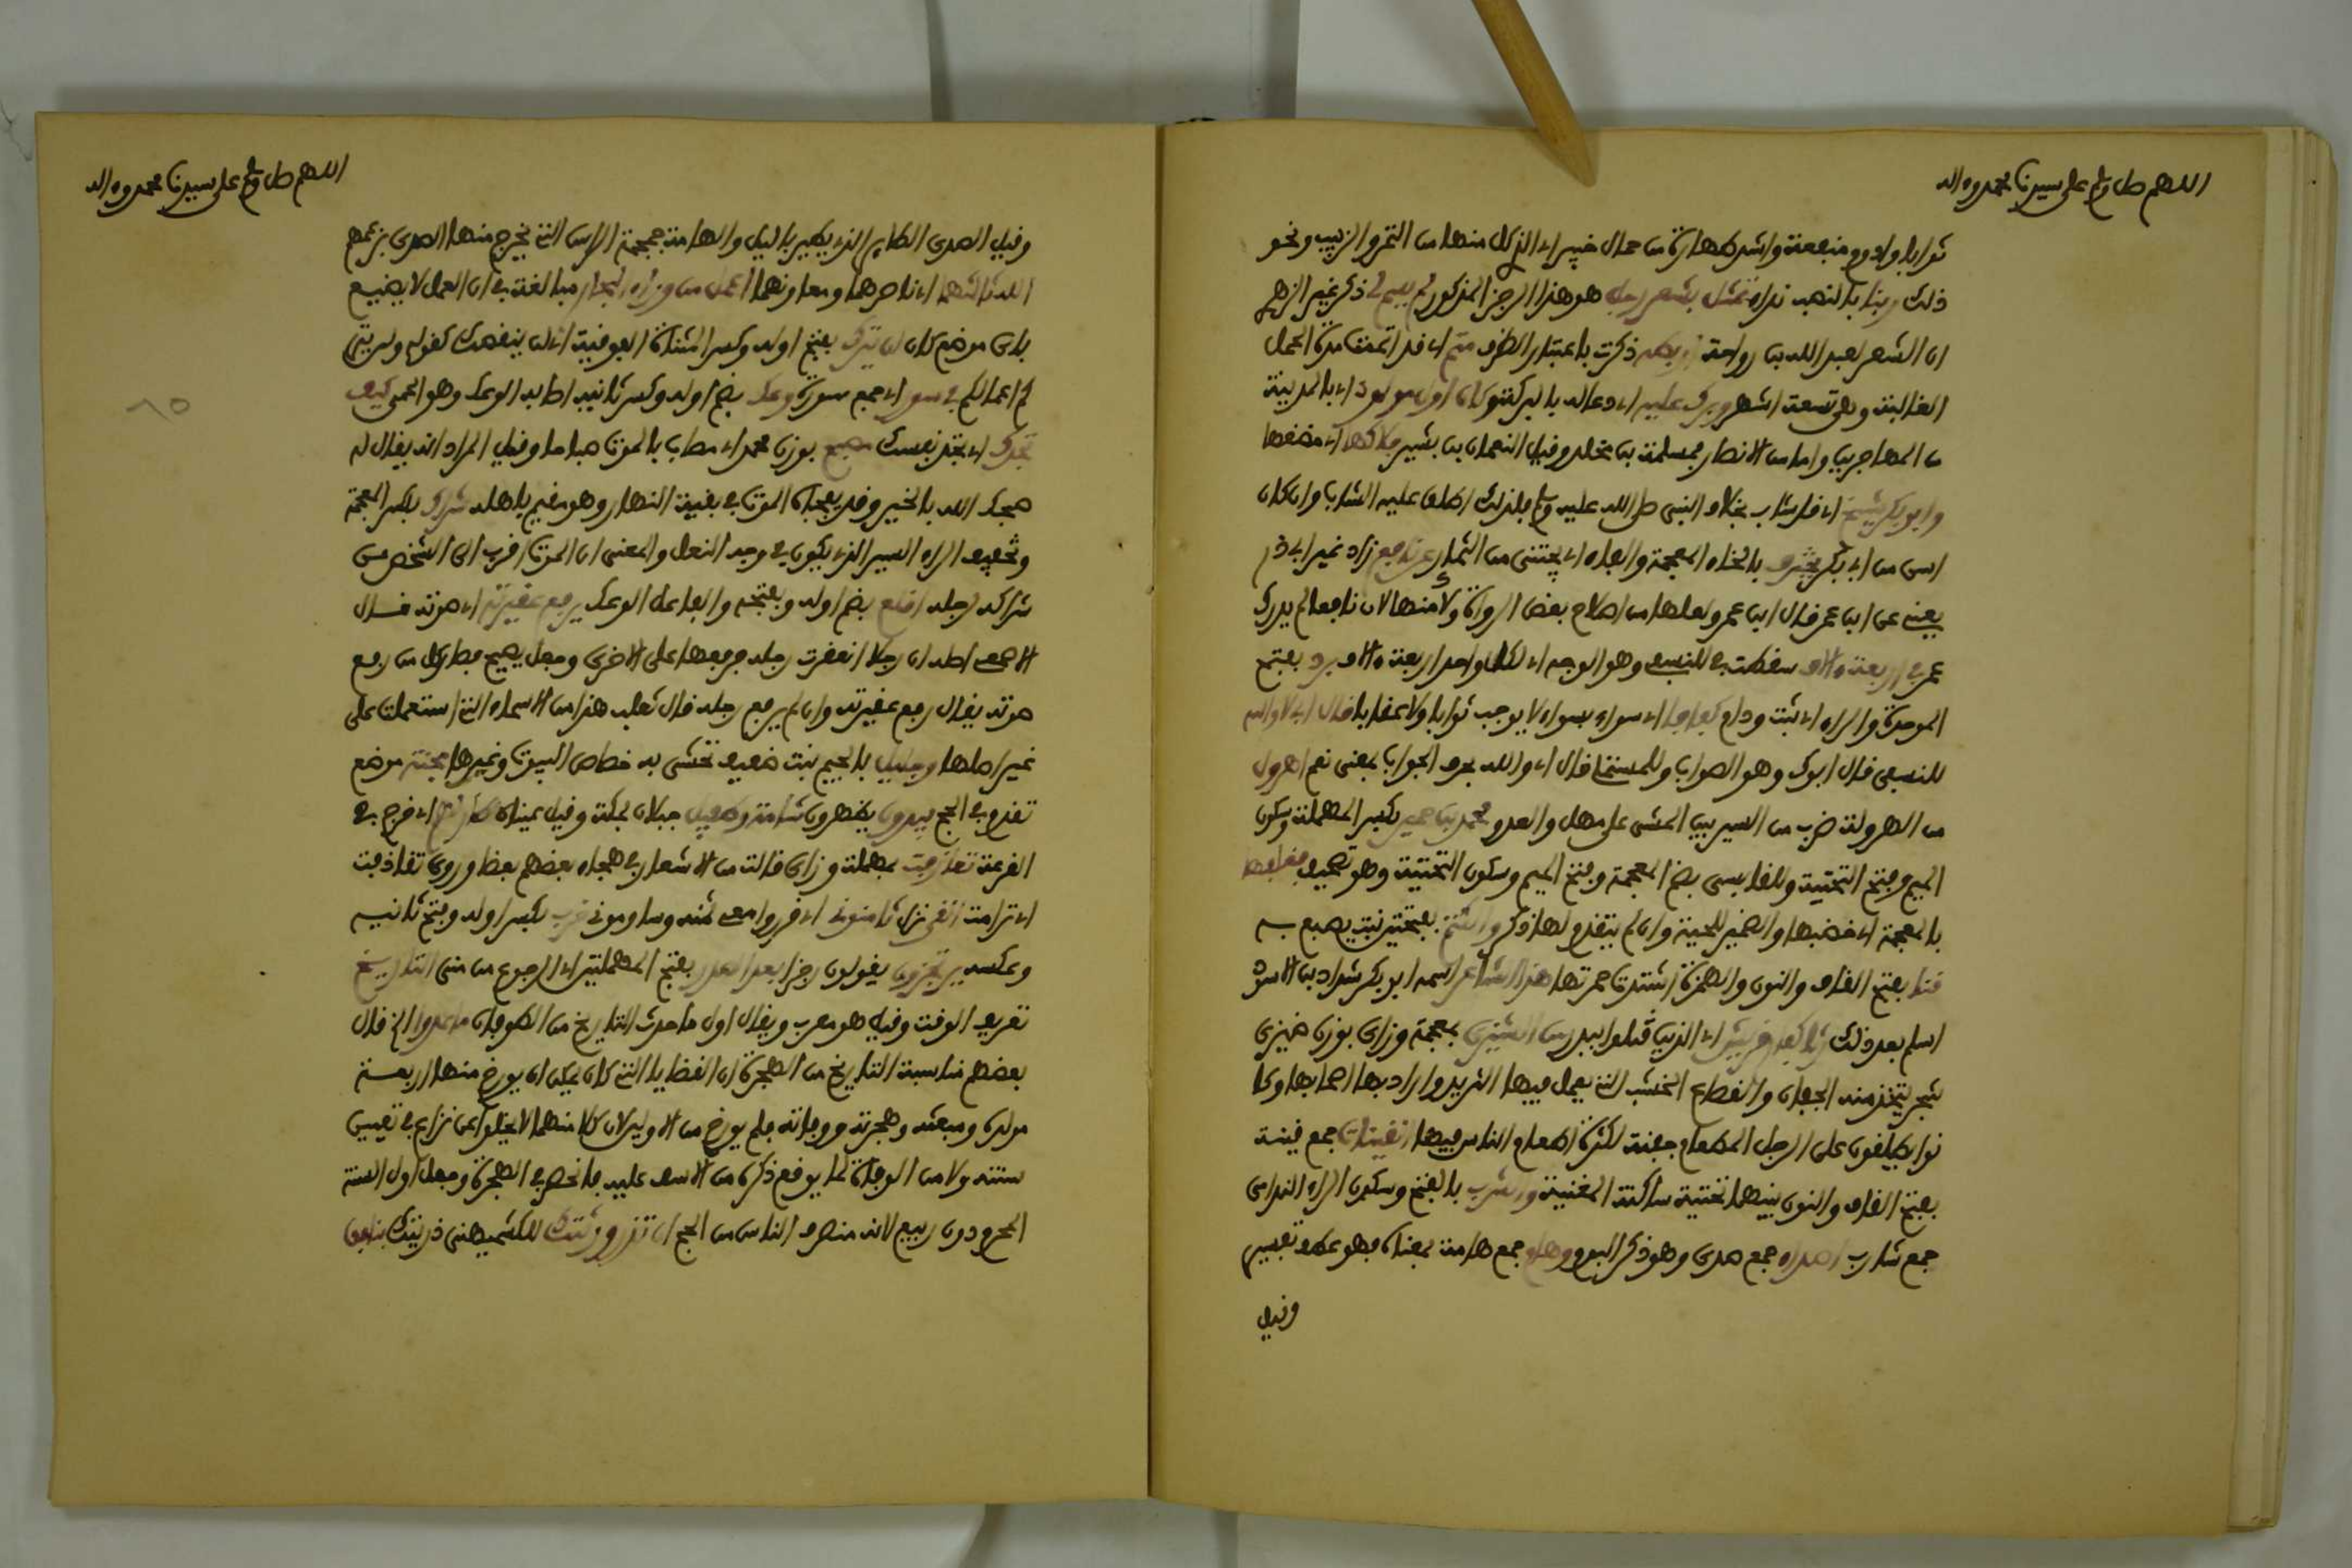 اللهم صل وسلم على سيدنا محمد وءاله
ثوابا وادوم منفعة واشد طهارة من حمال خيبر اي الذي يحمل منها من التمر والزبيب ونحو
ذلك ربنا بالنصب نداء تمثل بشعر رجل هو هذا الرجز المذكور لم يسم لي ذكر غير الزهري
ان الشعر لعبد الله بن رواحة ذكرت باعتبار الظرف متم اي قد اتممت مدة الحمل
الغالبة وهي تسعة اشهر وبرك عليه اي دعا له بالبركة وكان اول مولود اي بالمدينة
من المهاجرين واما من الانصار فمسلمة بن مخلد وقيل النعمان بن بشير فلاكها اي مضغها
وابو بكر شيخ اي قد شاب بخلاف النبي صلى الله عليه وسلم فلذلك اطلق عليه الشاب وان كان
اسن من ابي بكر يخترف بالخاء المعجمة والفاء اي يجتني من الثمار عن نافع زاد غير ابي ذر
يعني عن ابن عمر قال ابن عمر ولعلها من اصلاح بعض الرواة ولا منها لان نافعا لم يدرك
عمر في اربعة ءالاف سقطت في للنسفي وهو الوجه اي لكل واحد اربعة ءالاف برد بفتح
الموحدة والراء اي ثبت ودام كفافا اي سواء بسواء لا يوجب ثوابا ولا عقابا قال ابي لا والله
للنسفي قال ابوك وهو الصواب وللمستملي قال اي والله بحرف الجواب بمعنى نعم اهرول
من الهرولة ضرب من السير بين المشي على مهل والعدو محمد بن حمير بكسر المهملة وسكون
الميم وفتح التحتية وللقابسي بضم المعجمة وفتح الميم وسكون التحتية وهو تصحيف فغلفها
بالمعجمة اي خضبها والضمير للحية وان لم يتقدم لها ذكر والكتم بفتحتين نبت يصبغ به
قنأ بفتح القاف والنون والهمزة اشتدت حمرتها هذا الشاعر اسمه ابو بكر شداد بن الاسود
اسلم بعد ذلك رثا كفار قريش اي الذين قتلوا ببدر من الشيزى بمعجمة وزاي بوزن ضيزى
شجر يتخذ منه الجفان والقطاع الخشب التي يعمل فيها الثريد واراد بها اصحابها وكا
نوا يطلقون على الرجل المطعام جفنة لكثرة اطعام الناس فيها القينات جمع قينة
بفتح القاف والنون بينهما تحتية ساكنة المغنية والشرب بالفتح وسكون الراء الندامى
جمع شارب اصداء جمع صدى وهو ذكر البوم وهام جمع هامة بمعناه فهو عطف تفسير
وقيل
اللهم صل وسلم على سيدنا محمد وءاله
وقيل الصدى الطاير الذي يطير بالليل والهامة جمجمة الراس التي يخرج منها الصدى بزعمهم
الله ثالثهما اي ناصرهما ومعاونهما اعمل من وراء البحار مبالغة في ان العمل لا يضيع
باي موضع كان لن يترك بفتح اوله وكسر المثناة الفوقية اي لن ينقصك كقوله ولن يتر
كم اعمالكم في سور اي جمع سورة وعك بضم اوله وكسر ثانيه اصابه الوعك وهو الحمى كيف
تجدك اي تجد نفسك مصبح بوزن محمد اي مصاب بالموت صباحا وقيل المراد انه يقال له
صبحك الله بالخير وقد يفجاه الموت في بقية النهار وهو مقيم باهله شراك بكسر المعجمة
وتخفيف الراء السير الذي يكون في وجه النعل والمعنى ان الموت اقرب الى الشخص من
شراكه لرجله اقلع بضم اوله وبفتحه والفاعل الوعك يرفع عقيرته اي صوته قال
الاصمعي اصله ان رجلا انعقرت رجله فرفعها على الاخرى وجعل يصيح فصار كل من رفع
صوته يقال رفع عقيرته وان لم يرفع رجله قال ثعلب هذا من الاسماء التي استعملت على
غير اصلها وجليل بالجيم نبت ضعيف تحشى به خصاص البيوت وغيرها مجنة موضع
تقدم في الحج يبدون يظهرون شامة وطفيل جبلان بمكة وقيل عينان طار لهم اي خرج في
القرعة تعازفت بمهملة وزاي قالت من الاشعار في هجاء بعضهم بعضا وروي تقاذفت
اي ترامت الفى نزل ثامنوني اي قرروا معي ثمنه وساوموني خرب بكسر اوله وفتح ثانيه
وعكسه يرتجزون يقولون رجزا بعد الصدر بفتح المهملتين اي الرجوع من منى التاريخ
تعريف الوقت وقيل هو معرب ويقال اول ما حدث التاريخ من الطوفان ما عدوا الخ قال
بعضهم مناسبة التاريخ من الهجرة ان القضايا التي كان يمكن ان يورخ منها اربعة
مولده ومبعثه وهجرته ووفاته فلم يورخ من الاولين لان كلا منهما لا يخلو عن نزاع في تعيين
سنته ولا من الوفاة لما يوقع ذكره من الاسف عليه فانحصر في الهجرة وجعل اول السنة
المحرم دون ربيع لانه منصرف الناس من الحج ان تذر ورثتك للكشميهني ذريتك بنافق